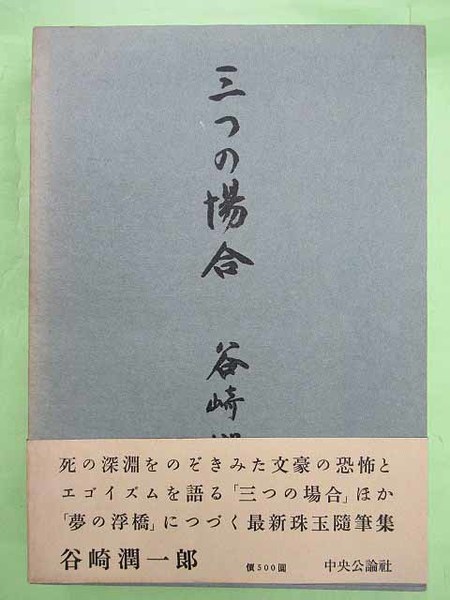 三つの場合
谷崎
死の深淵をのぞきみた文豪の恐怖と
エゴイズムを語る「三つの場合」ほか
「夢の浮橋」につづく最新珠玉隨筆集
谷崎潤一郎 價500圓 中央公論社